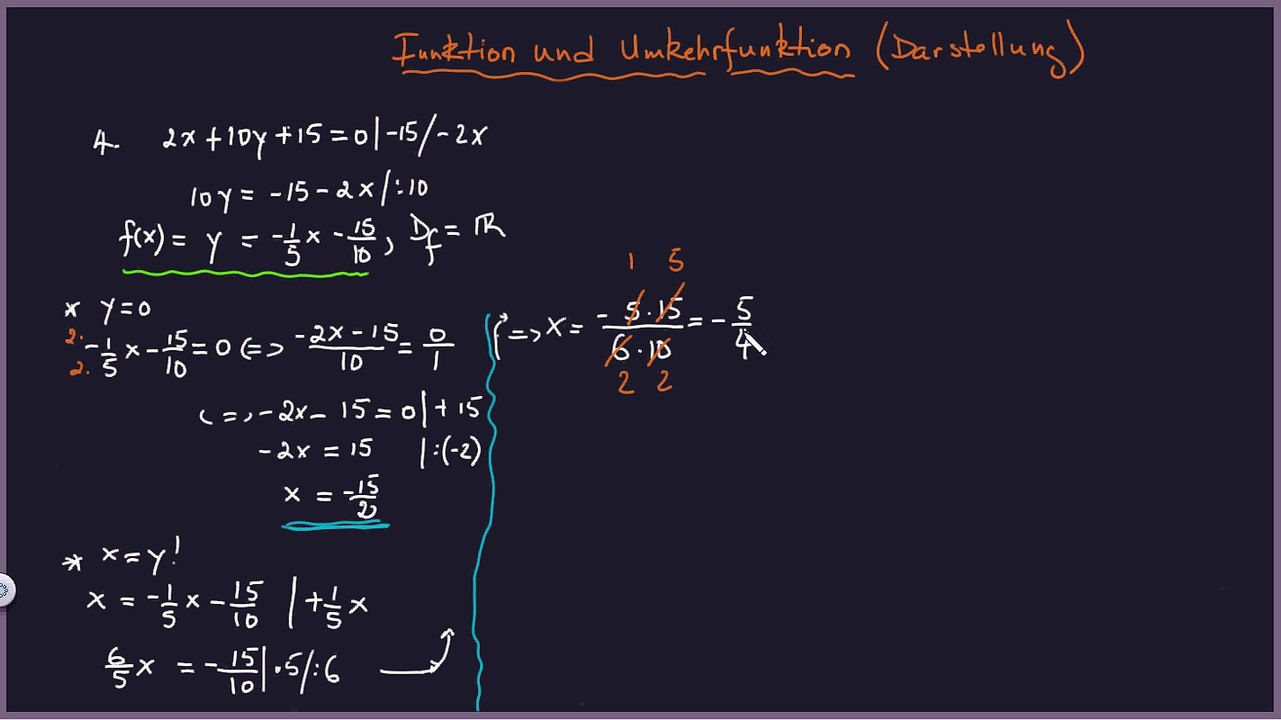 Funktion und Umkehrfunktion (Darstellung)
4. 2x + 10y + 15 = 0 | -15 / -2x
10y = -15 - 2x / :10
f(x) = y = -1/5 x - 15/10, Df = ℝ
* y = 0
2. 2. -1/5 x - 15/10 = 0 <=> -2x - 15/10 = 0/1
<=> -2x - 15 = 0 | + 15
-2x = 15 | :(-2)
x = -15/2
* x = y!
x = -1/5 x - 15/10 | + 1/5 x
6/5 x = -15/10 | · 5 / :6
1 5
=> x = - 5 · 15 / 6 · 10 = - 5/4
2 2